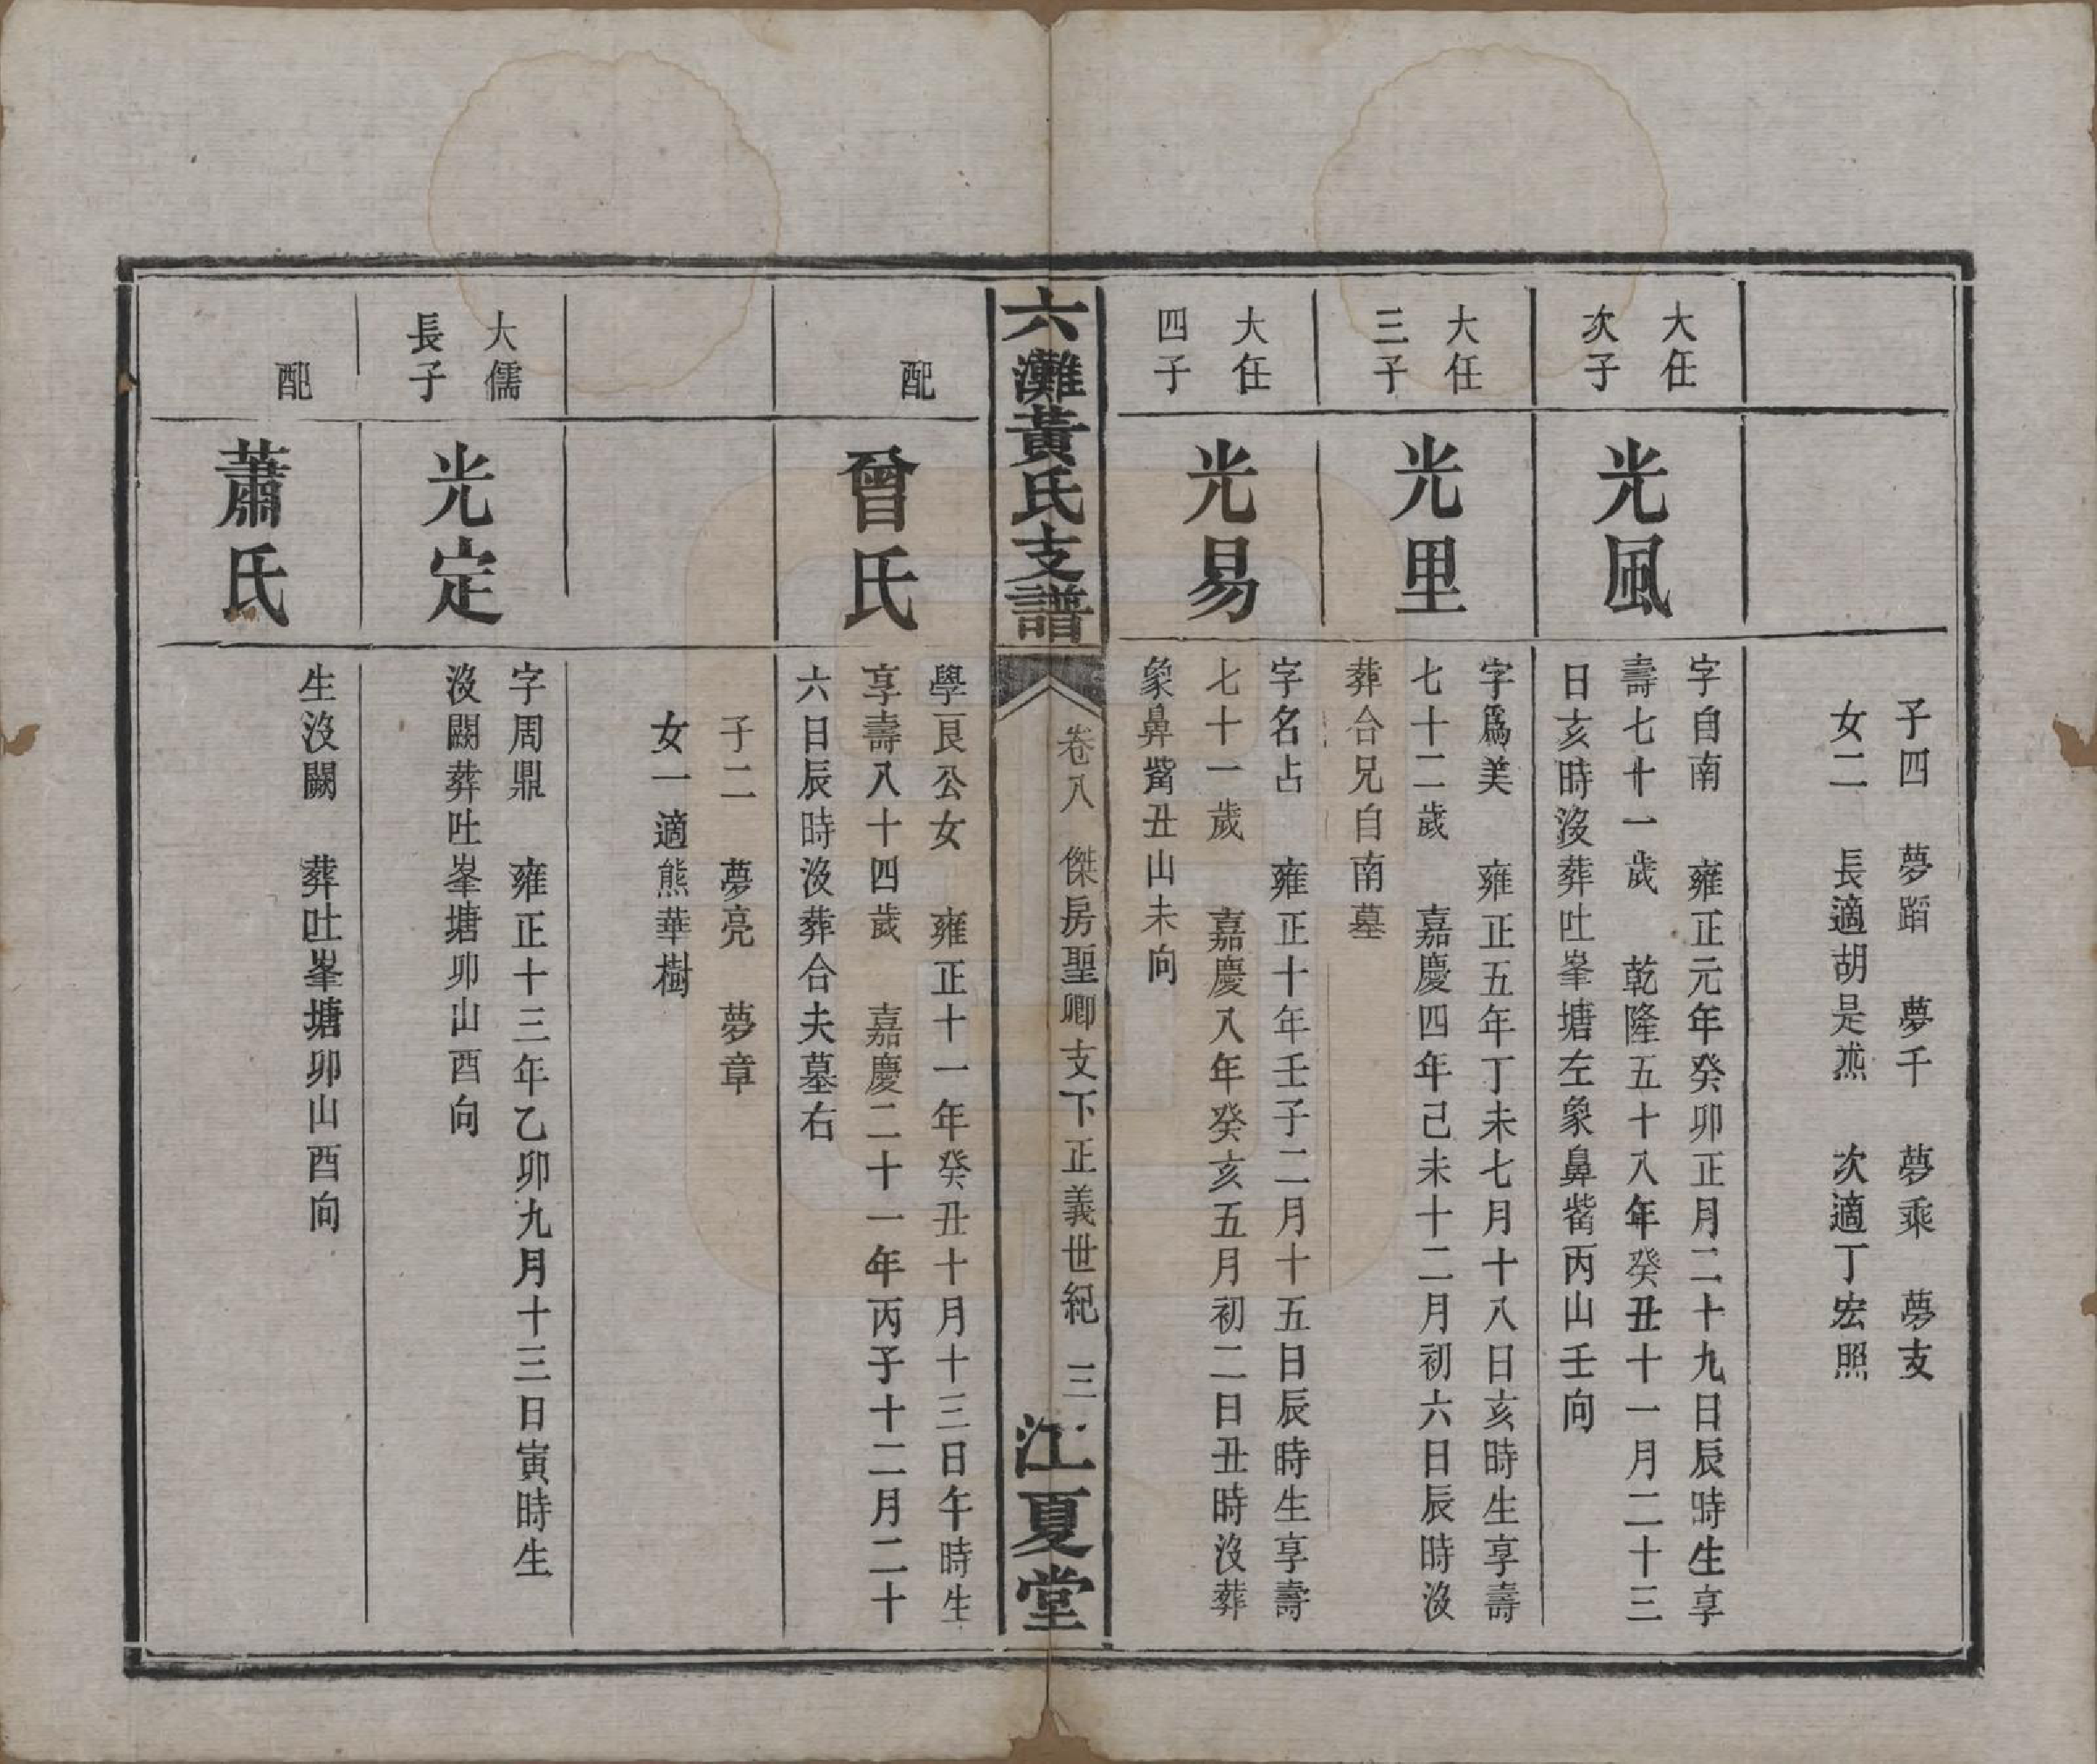 子四　夢蹈　夢千　夢乘　夢支
女二　長適胡是烝　次適丁宏照
大任
次子
光風
字自南　雍正元年癸卯正月二十九日辰時生享
壽七十一歲　乾隆五十八年癸丑十一月二十三
日亥時沒葬吐峯塘左象鼻觜丙山壬向
大任
三子
光里
字爲美　雍正五年丁未七月十八日亥時生享壽
七十二歲　嘉慶四年己未十二月初六日辰時沒
葬合兄自南墓
大任
四子
光易
字名占　雍正十年壬子二月十五日辰時生享壽
七十一歲　嘉慶八年癸亥五月初二日丑時沒葬
象鼻觜丑山未向
六灘黃氏支譜
卷八　傑房聖卿支下正義世紀　三
江夏堂
配
曾氏
學良公女　雍正十一年癸丑十月十三日午時生
享壽八十四歲　嘉慶二十一年丙子十二月二十
六日辰時沒葬合夫墓右
子二　夢亮　夢章
女一適熊華樹
大儒
長子
光定
字周鼎　雍正十三年乙卯九月十三日寅時生
沒闕葬吐峯塘卯山酉向
配
蕭氏
生沒闕　葬吐峯塘卯山酉向